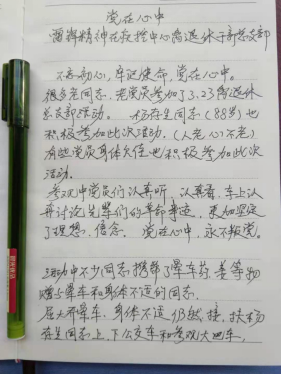 党在心中
雷锋精神在疾控中心离退休干部党支部
不忘初心，牢记使命，党在心中。
很多老同志、老党员参加了3.23离退休
总支部活动。 同志(88岁)也
积极参加此次活动。(人老心不老)
有些党员身体欠佳也积极参加此次
活动。
参观中党员们认真听，认真看，车上认
真讨论先辈们的革命事迹，更加坚定
了理想、信念。 党在心中，永不叛党。
活动中不少同志携带了晕车药、姜等物
赠与晕车和身体不适的同志。
晕车、身体不适仍然 接、扶杨
同志上、下公交车和参观大巴车。